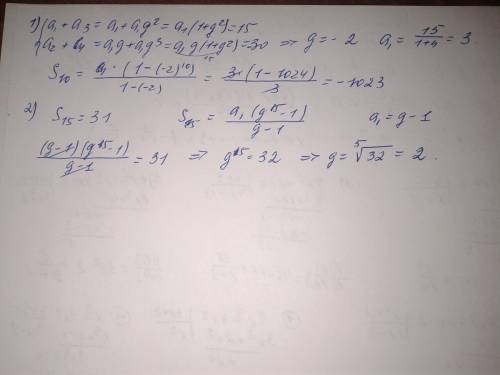 1) (a₁ + a₃ = a₁ + a₁g² = a₁(1+g²) = 15
a₂ + a₄ = a₁g + a₁g³ = a₁g(1+g²) = 30 ⇒ g = - 2 a₁ = 15/(1+4) = 3
S₁₀ = a₁·(1-(-2)¹⁰)/(1-(-2)) = 3·(1-1024)/3 = -1023
2) S₁₅ = 31 S₁₅ = a₁(g¹⁵-1)/(g-1) a₁ = g-1
(g-1)(g¹⁵-1)/(g-1) = 31 ⇒ g¹⁵ = 32 ⇒ g = ⁵√32 = 2.